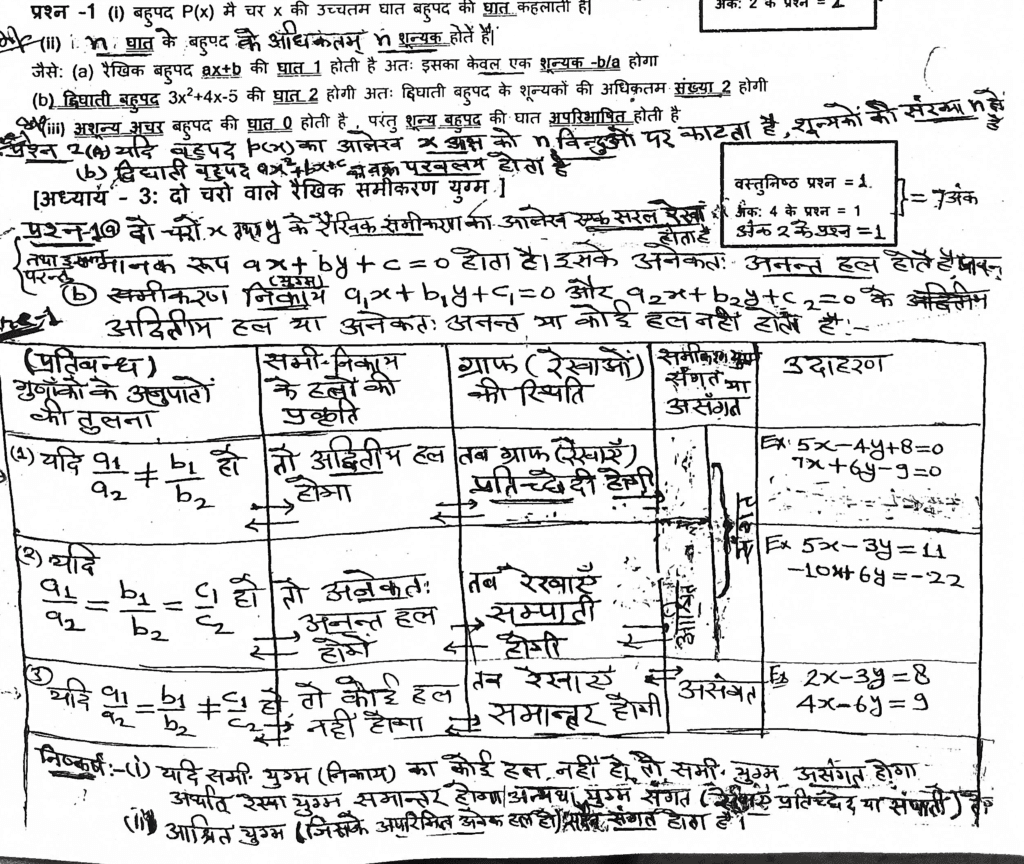 प्रश्न -1 (i) बहुपद P(x) मै चर x की उच्चतम घात बहुपद की घात कहलाती है|
अंक: 2 के प्रश्न = 1
(ii) n घात के बहुपद के अधिकतम् n शून्यक होतें हैं|
जैसे: (a) रैखिक बहुपद ax+b की घात 1 होती है अतः इसका केवल एक शून्यक -b/a होगा
(b) द्विघाती बहुपद 3x²+4x-5 की घात 2 होगी अतः द्विघाती बहुपद के शून्यकों की अधिकतम संख्या 2 होगी
(iii) अशून्य अचर बहुपद की घात 0 होती है , परंतु शून्य बहुपद की घात अपरिभाषित होती है
प्रश्न 2(A) यदि बहुपद p(x) का आलेख x अक्ष को n बिन्दुओं पर काटता है , शून्यकों की संख्या n है
(b) द्विघाती बहुपद ax²+bx+c का वक्र परवलय होता है
[अध्याय - 3: दो चरो वाले रैखिक समीकरण युग्म ]
वस्तुनिष्ठ प्रश्न = 1
अंक: 4 के प्रश्न = 1
अंक 2 के प्रश्न = 1
= 7 अंक
प्रश्न-1 (a) दो चरों x तथा y के रैखिक समीकरण का आलेख एक सरल रेखा होता है
तथा इसका मानक रूप ax+by+c=0 होता है। इसके अनेकतः अनन्त हल होते हैं
परन्तु
(b) समीकरण निकाय (युग्म) a₁x+b₁y+c₁=0 और a₂x+b₂y+c₂=0 के
अद्वितीय हल या अनेकतः अनन्त या कोई हल नहीं होता है:-
(प्रतिबन्ध) गुणांकों के अनुपातों की तुलना
समी. निकाय के हलों की प्रकृति
ग्राफ (रेखाओं) की स्थिति
समीकरण युग्म संगत या असंगत
उदाहरण
(1) यदि a₁/a₂ ≠ b₁/b₂ हो
तो अद्वितीय हल होगा
तब ग्राफ (रेखाएँ) प्रतिच्छेदी होंगी
संगत
Ex: 5x-4y+8=0
7x+6y-9=0
(2) यदि a₁/a₂ = b₁/b₂ = c₁/c₂ हो
तो अनेकतः अनन्त हल होंगे
तब रेखाएँ सम्पाती होंगी
आश्रित
Ex 5x-3y=11
-10x+6y=-22
(3) यदि a₁/a₂ = b₁/b₂ ≠ c₁/c₂ हो
तो कोई हल नहीं होगा
तब रेखाएँ समान्तर होंगी
असंगत
Ex 2x-3y=8
4x-6y=9
निष्कर्ष:-(i) यदि समी. युग्म (निकाय) का कोई हल नहीं है, तो समी. युग्म असंगत होगा
अर्थात रेखा युग्म समान्तर होगा अन्यथा युग्म संगत (रेखाएं प्रतिच्छेद या संपाती) है
(ii) आश्रित युग्म (जिसके अपरिमित अनेक हल हो) सदैव संगत होता है।